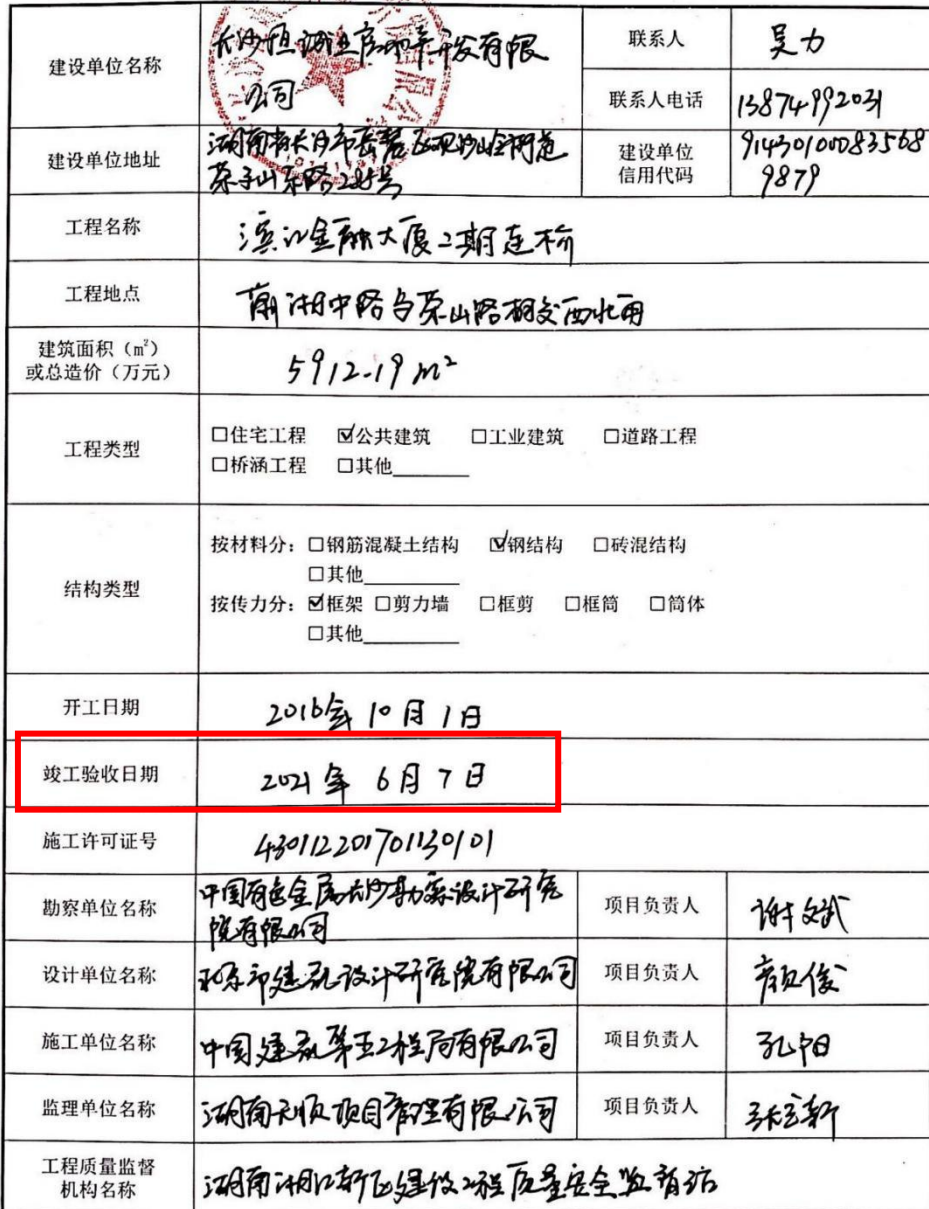 建设单位名称
长沙恒诚业房地产开发有限
公司
联系人
吴力
联系人电话
13874992031
建设单位地址
湖南省长沙市岳麓区观沙岭街道
茶子山东路
建设单位
信用代码
91430100083568
9879
工程名称
滨江金融大厦二期连桥
工程地点
潇湘中路与茶山路相交西北角
建筑面积（m²）
或总造价（万元）
5912.19 m²
工程类型
□住宅工程 ☑公共建筑 □工业建筑 □道路工程
□桥涵工程 □其他________
结构类型
按材料分：□钢筋混凝土结构 ☑钢结构 □砖混结构
□其他________
按传力分：☑框架 □剪力墙 □框剪 □框筒 □筒体
□其他________
开工日期
2016年10月1日
竣工验收日期
2021年 6月7日
施工许可证号
430112201701130101
勘察单位名称
中国有色金属长沙勘察设计研究
院有限公司
项目负责人
谢文武
设计单位名称
北京市建筑设计研究院有限公司
项目负责人
颜俊
施工单位名称
中国建筑第五工程局有限公司
项目负责人
孔阳
监理单位名称
湖南天顺项目管理有限公司
项目负责人
工程质量监督
机构名称
湖南湘江新区建设工程质量安全监督站